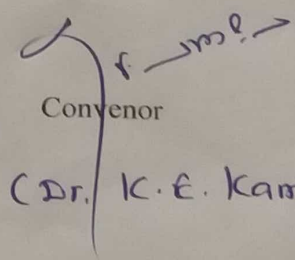 Convenor
(Dr. K. E. Kan